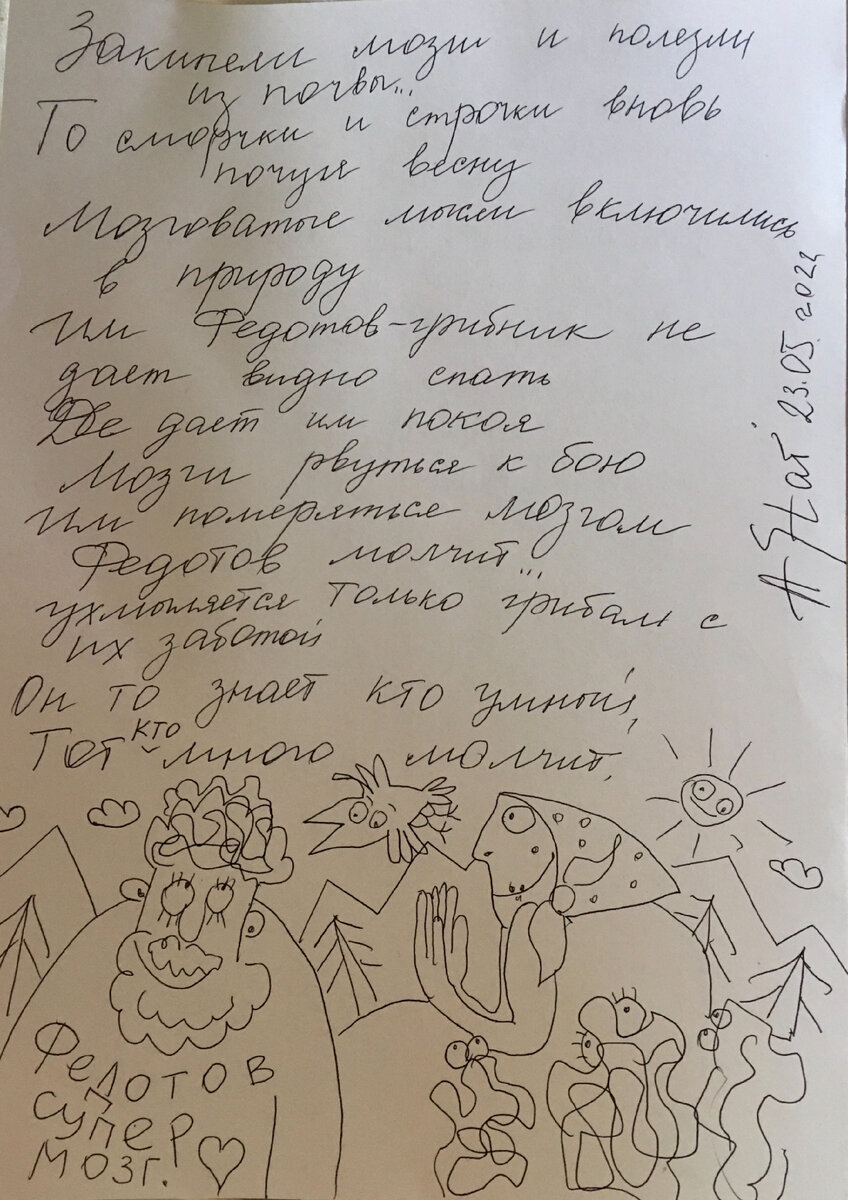 Закипели мозги и полезли
из почвы...
То сморчки и строчки вновь
почуя весну
Мозговатые мысли включились
в природу
Им Федотов-грибник не
дает видно спать
Не дает им покоя
Мозги рвуться к бою
Им померяться мозгом
Федотов молчит...
ухмыляется только грибам с
их заботой
Он то знает кто умный,
Тот кто много молчит.
23.05.2022
Федотов
супер
мозг.